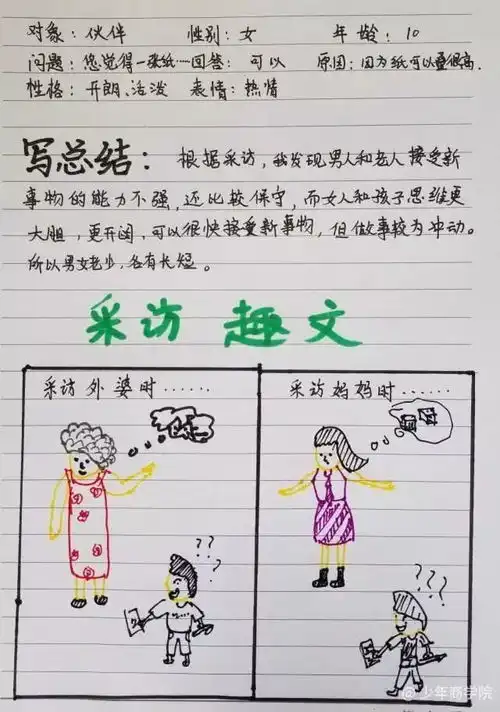 对象：伙伴 性别：女 年龄：10
问题：您觉得一张纸……回答：可以 原因：因为纸可以叠很高.
性格：开朗、活泼 表情：热情
写总结：根据采访，我发现男人和老人接受新
事物的能力不强，还比较保守，而女人和孩子思维更
大胆，更开阔，可以很快接受新事物，但做事较为冲动。
所以男女老少，各有长短。
采访 趣文
采访外婆时……
采访妈妈时……
??
???
@少年商学院